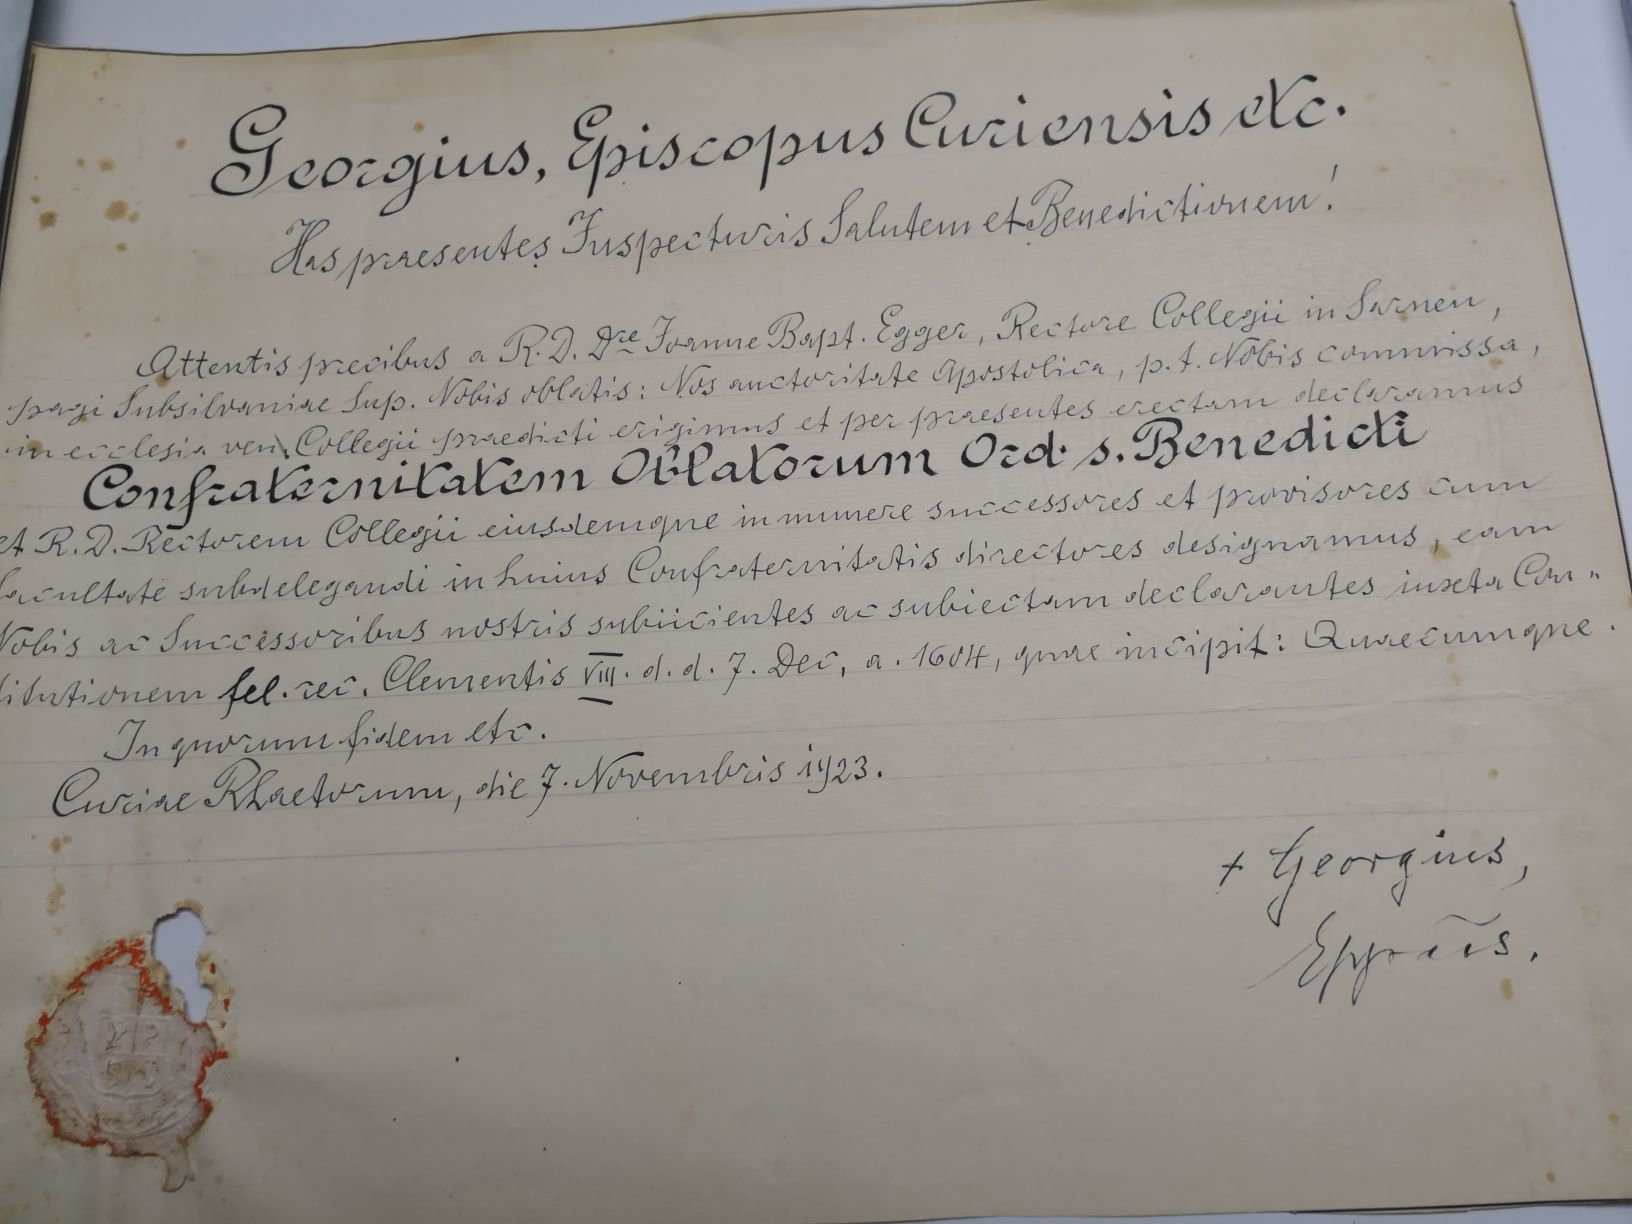 Georgius, Episcopus Curiensis etc.
Has praesentes Inspecturis Salutem et Benedictionem!
Attentis precibus a R. D. Dre Joanne Bapt. Egger, Rectore Collegii in Sarnen,
pagi Subsilvaniae Sup. Nobis oblatis: Nos auctoritate Apostolica, p. t. Nobis commissa,
in ecclesia ven. Collegii praedicti erigimus et per praesentes erectam declaramus
Confraternitatem Oblatorum Ord. s. Benedicti
et R. D. Rectorem Collegii eiusdemque in munere successores et provisores cum
facultate subdelegandi in huius Confraternitatis directores designamus, eam
Nobis ac Successoribus nostris subiicientes ac subiectam declarantes iuxta Con-
titutionem fel. rec. Clementis VIII. d. d. 7. Dec, a. 1604, quae incipit: Quaecumque.
In quorum fidem etc.
Curiae Rhaetorum, die 7. Novembris 1923.
+ Georgius,
Eppũs.